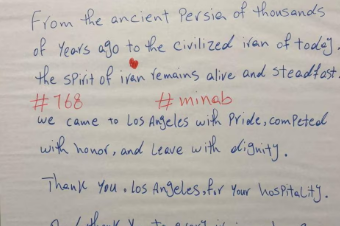 From the ancient Persia of thousands
of years ago to the civilized iran of today.
the spirit of iran remains alive and steadfast.
#768 #minab
we came to Los Angeles with Pride, competed
with honor, and leave with dignity.
Thank you. Los Angeles, for your hospitality.